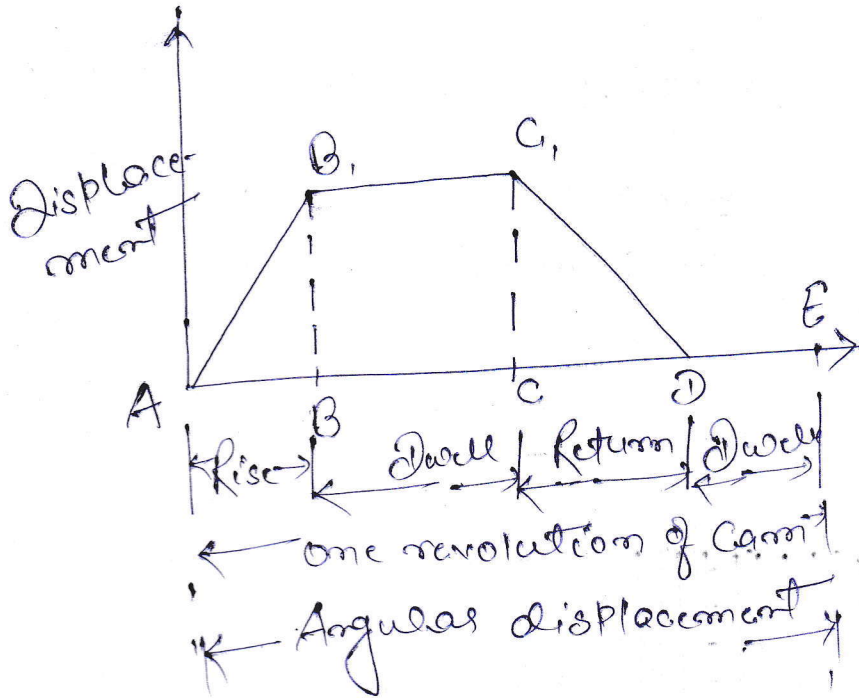 Displace-
ment
B1
C1
E
A
B
C
D
Rise
Dwell
Return
Dwell
one revolution of Cam
Angular displacement